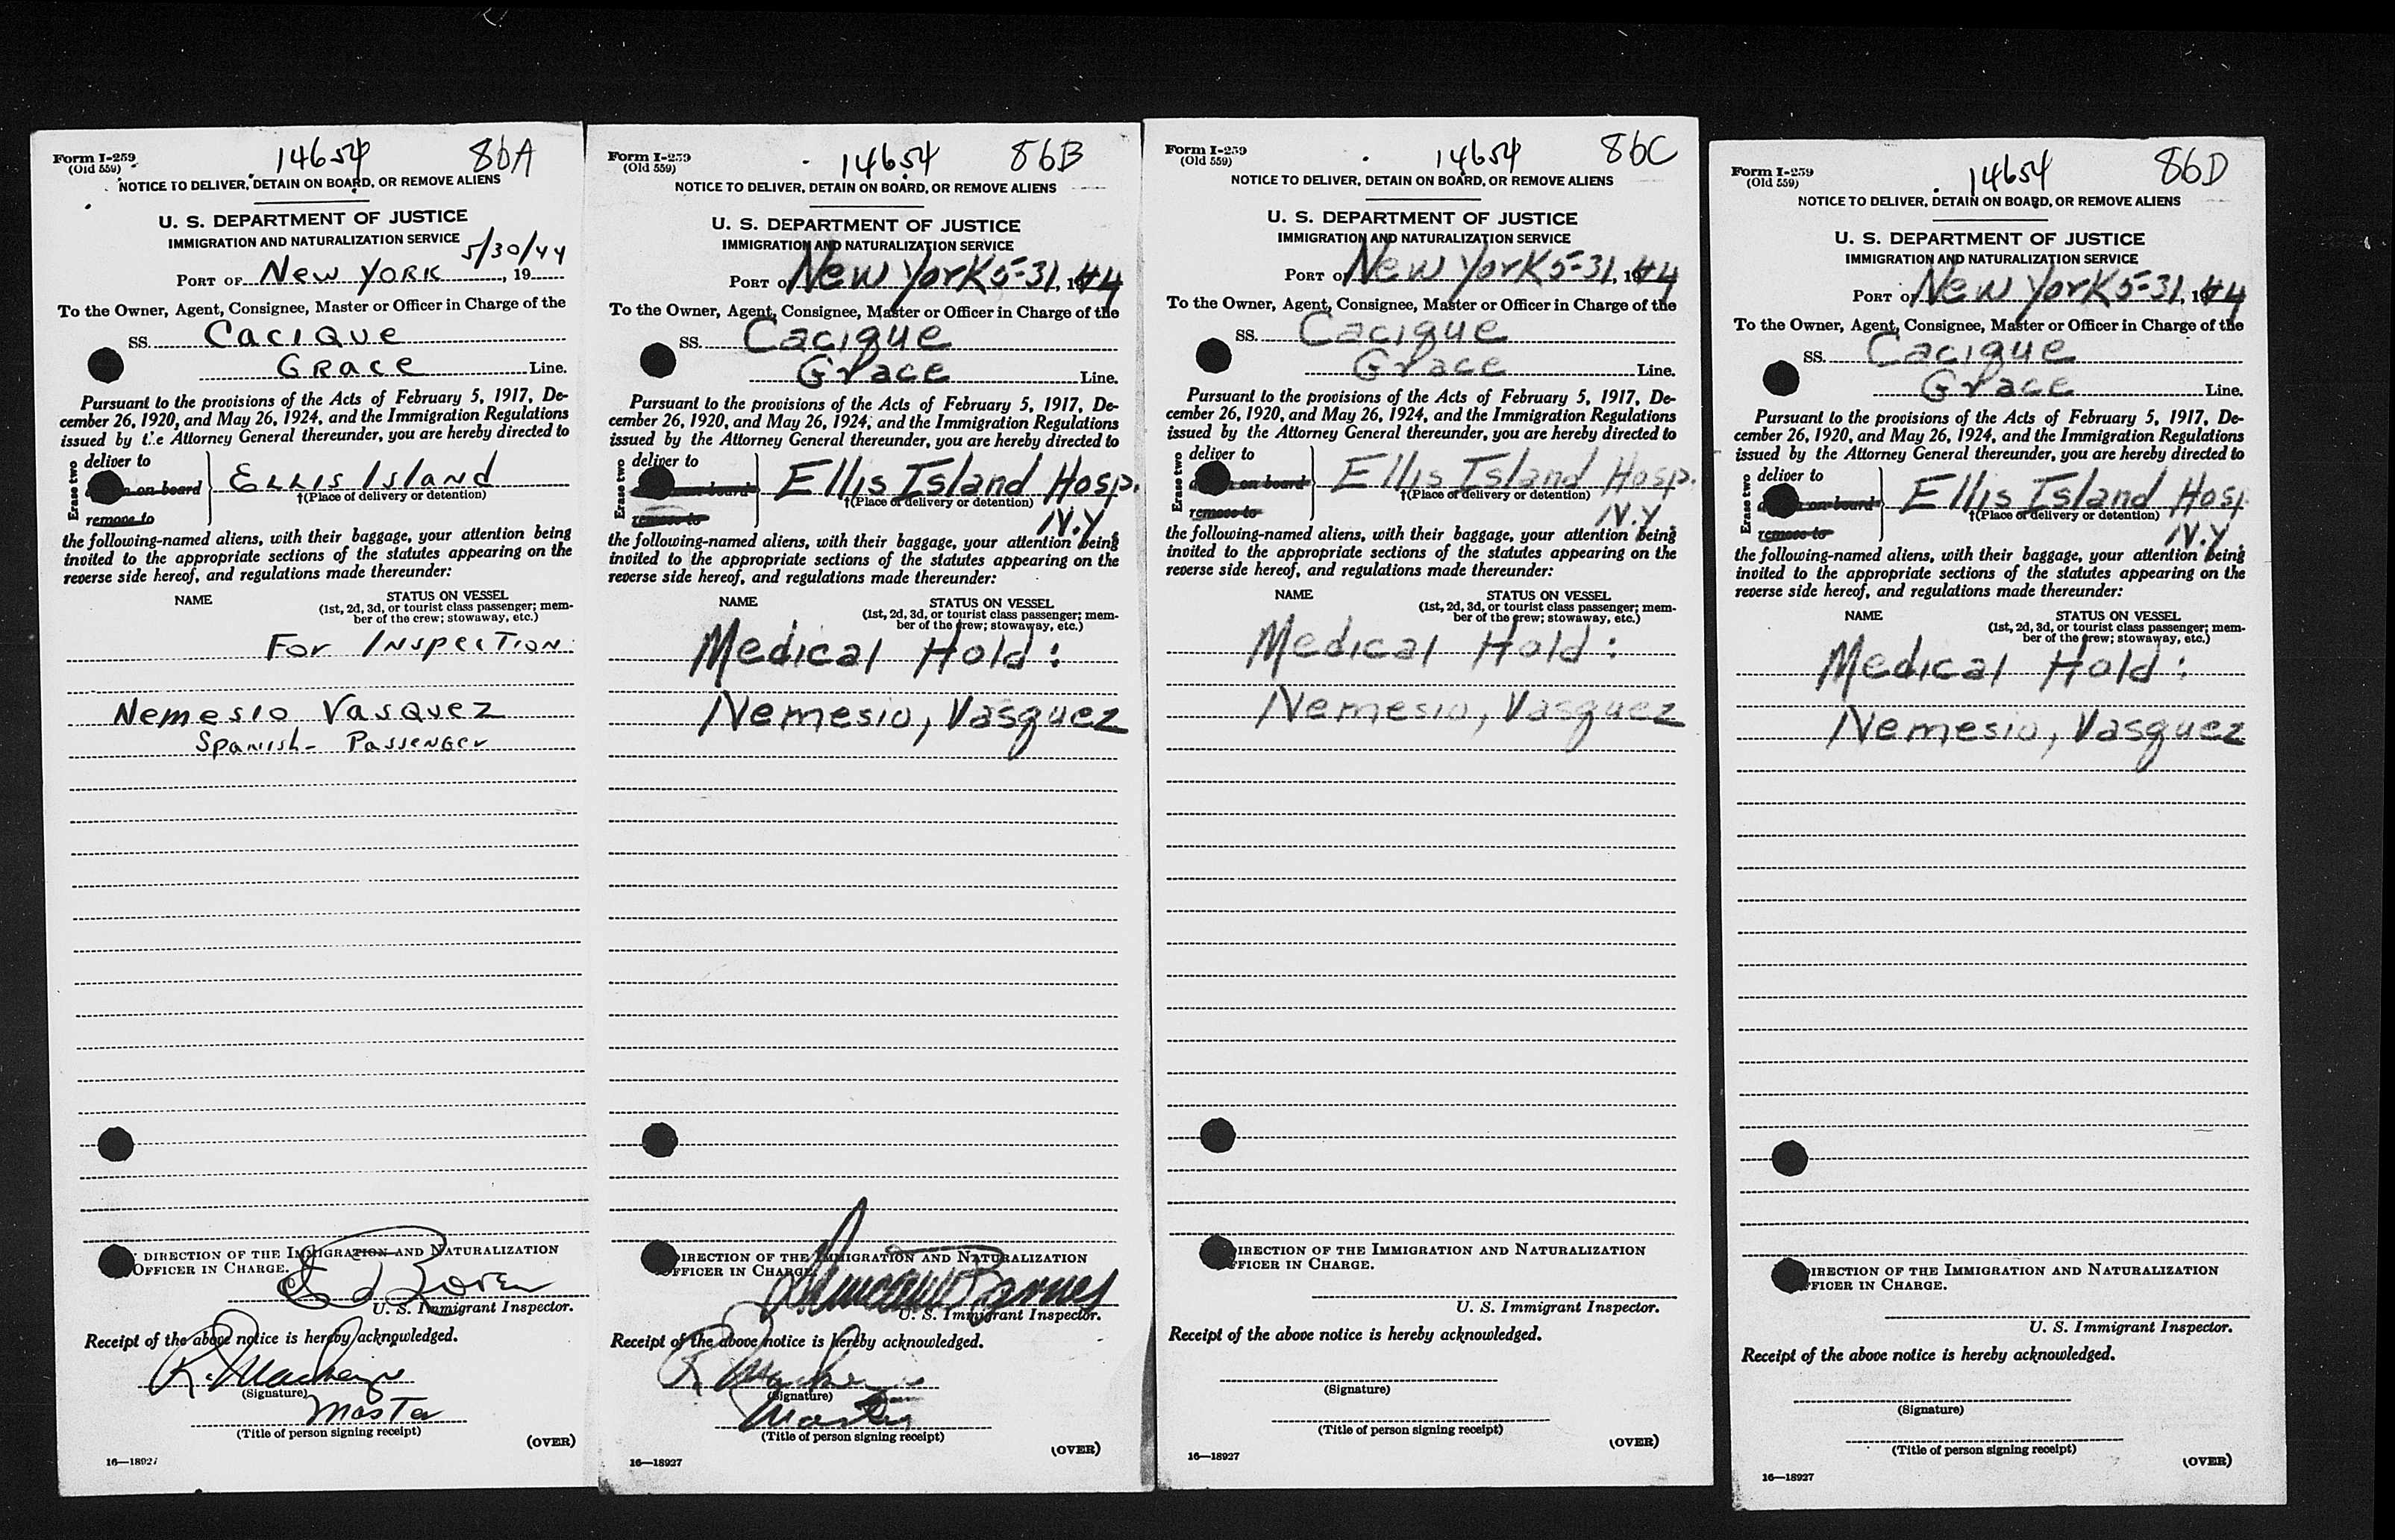 Form I-259
(Old 559)
14654
86A
NOTICE TO DELIVER, DETAIN ON BOARD, OR REMOVE ALIENS
U. S. DEPARTMENT OF JUSTICE
IMMIGRATION AND NATURALIZATION SERVICE
5/30/44
PORT OF New York, 19
To the Owner, Agent, Consignee, Master or Officer in Charge of the
SS. Cacique
Grace Line.
Pursuant to the provisions of the Acts of February 5, 1917, De-
cember 26, 1920, and May 26, 1924, and the Immigration Regulations
issued by the Attorney General thereunder, you are hereby directed to
Erase two
deliver to
on board
remove to
Ellis Island
†(Place of delivery or detention)
the following-named aliens, with their baggage, your attention being
invited to the appropriate sections of the statutes appearing on the
reverse side hereof, and regulations made thereunder:
NAME
STATUS ON VESSEL
(1st, 2d, 3d, or tourist class passenger; mem-
ber of the crew; stowaway, etc.)
For Inspection
Nemesio Vasquez
Spanish - Passenger
DIRECTION OF THE IMMIGRATION AND NATURALIZATION
OFFICER IN CHARGE.
U. S. Immigrant Inspector.
Receipt of the above notice is hereby acknowledged.
(Signature)
Master
(Title of person signing receipt)
(OVER)
16—18927
Form I-259
(Old 559)
14654
86B
NOTICE TO DELIVER, DETAIN ON BOARD, OR REMOVE ALIENS
U. S. DEPARTMENT OF JUSTICE
IMMIGRATION AND NATURALIZATION SERVICE
PORT OF New York 5-31, 1944
To the Owner, Agent, Consignee, Master or Officer in Charge of the
SS. Cacique
Grace Line.
Pursuant to the provisions of the Acts of February 5, 1917, De-
cember 26, 1920, and May 26, 1924, and the Immigration Regulations
issued by the Attorney General thereunder, you are hereby directed to
Erase two
deliver to
on board
remove to
Ellis Island Hosp.
†(Place of delivery or detention)
N.Y.
the following-named aliens, with their baggage, your attention being
invited to the appropriate sections of the statutes appearing on the
reverse side hereof, and regulations made thereunder:
NAME
STATUS ON VESSEL
(1st, 2d, 3d, or tourist class passenger; mem-
ber of the crew; stowaway, etc.)
Medical Hold:
Nemesio, Vasquez
DIRECTION OF THE IMMIGRATION AND NATURALIZATION
OFFICER IN CHARGE.
Barnes
U. S. Immigrant Inspector.
Receipt of the above notice is hereby acknowledged.
(Signature)
Master
(Title of person signing receipt)
(OVER)
16—18927
Form I-259
(Old 559)
14654
86C
NOTICE TO DELIVER, DETAIN ON BOARD, OR REMOVE ALIENS
U. S. DEPARTMENT OF JUSTICE
IMMIGRATION AND NATURALIZATION SERVICE
PORT OF New York 5-31, 1944
To the Owner, Agent, Consignee, Master or Officer in Charge of the
SS. Cacique
Grace Line.
Pursuant to the provisions of the Acts of February 5, 1917, De-
cember 26, 1920, and May 26, 1924, and the Immigration Regulations
issued by the Attorney General thereunder, you are hereby directed to
Erase two
deliver to
on board
remove to
Ellis Island Hosp.
†(Place of delivery or detention)
N.Y.
the following-named aliens, with their baggage, your attention being
invited to the appropriate sections of the statutes appearing on the
reverse side hereof, and regulations made thereunder:
NAME
STATUS ON VESSEL
(1st, 2d, 3d, or tourist class passenger; mem-
ber of the crew; stowaway, etc.)
Medical Hold:
Nemesio, Vasquez
DIRECTION OF THE IMMIGRATION AND NATURALIZATION
OFFICER IN CHARGE.
U. S. Immigrant Inspector.
Receipt of the above notice is hereby acknowledged.
(Signature)
(Title of person signing receipt)
(OVER)
16—18927
Form I-259
(Old 559)
14654
86D
NOTICE TO DELIVER, DETAIN ON BOARD, OR REMOVE ALIENS
U. S. DEPARTMENT OF JUSTICE
IMMIGRATION AND NATURALIZATION SERVICE
PORT OF New York 5-31, 1944
To the Owner, Agent, Consignee, Master or Officer in Charge of the
SS. Cacique
Grace Line.
Pursuant to the provisions of the Acts of February 5, 1917, De-
cember 26, 1920, and May 26, 1924, and the Immigration Regulations
issued by the Attorney General thereunder, you are hereby directed to
Erase two
deliver to
on board
remove to
Ellis Island Hosp
†(Place of delivery or detention)
N.Y.
the following-named aliens, with their baggage, your attention being
invited to the appropriate sections of the statutes appearing on the
reverse side hereof, and regulations made thereunder:
NAME
STATUS ON VESSEL
(1st, 2d, 3d, or tourist class passenger; mem-
ber of the crew; stowaway, etc.)
Medical Hold:
Nemesio, Vasquez
DIRECTION OF THE IMMIGRATION AND NATURALIZATION
OFFICER IN CHARGE.
U. S. Immigrant Inspector.
Receipt of the above notice is hereby acknowledged.
(Signature)
(Title of person signing receipt)
(OVER)
16—18927